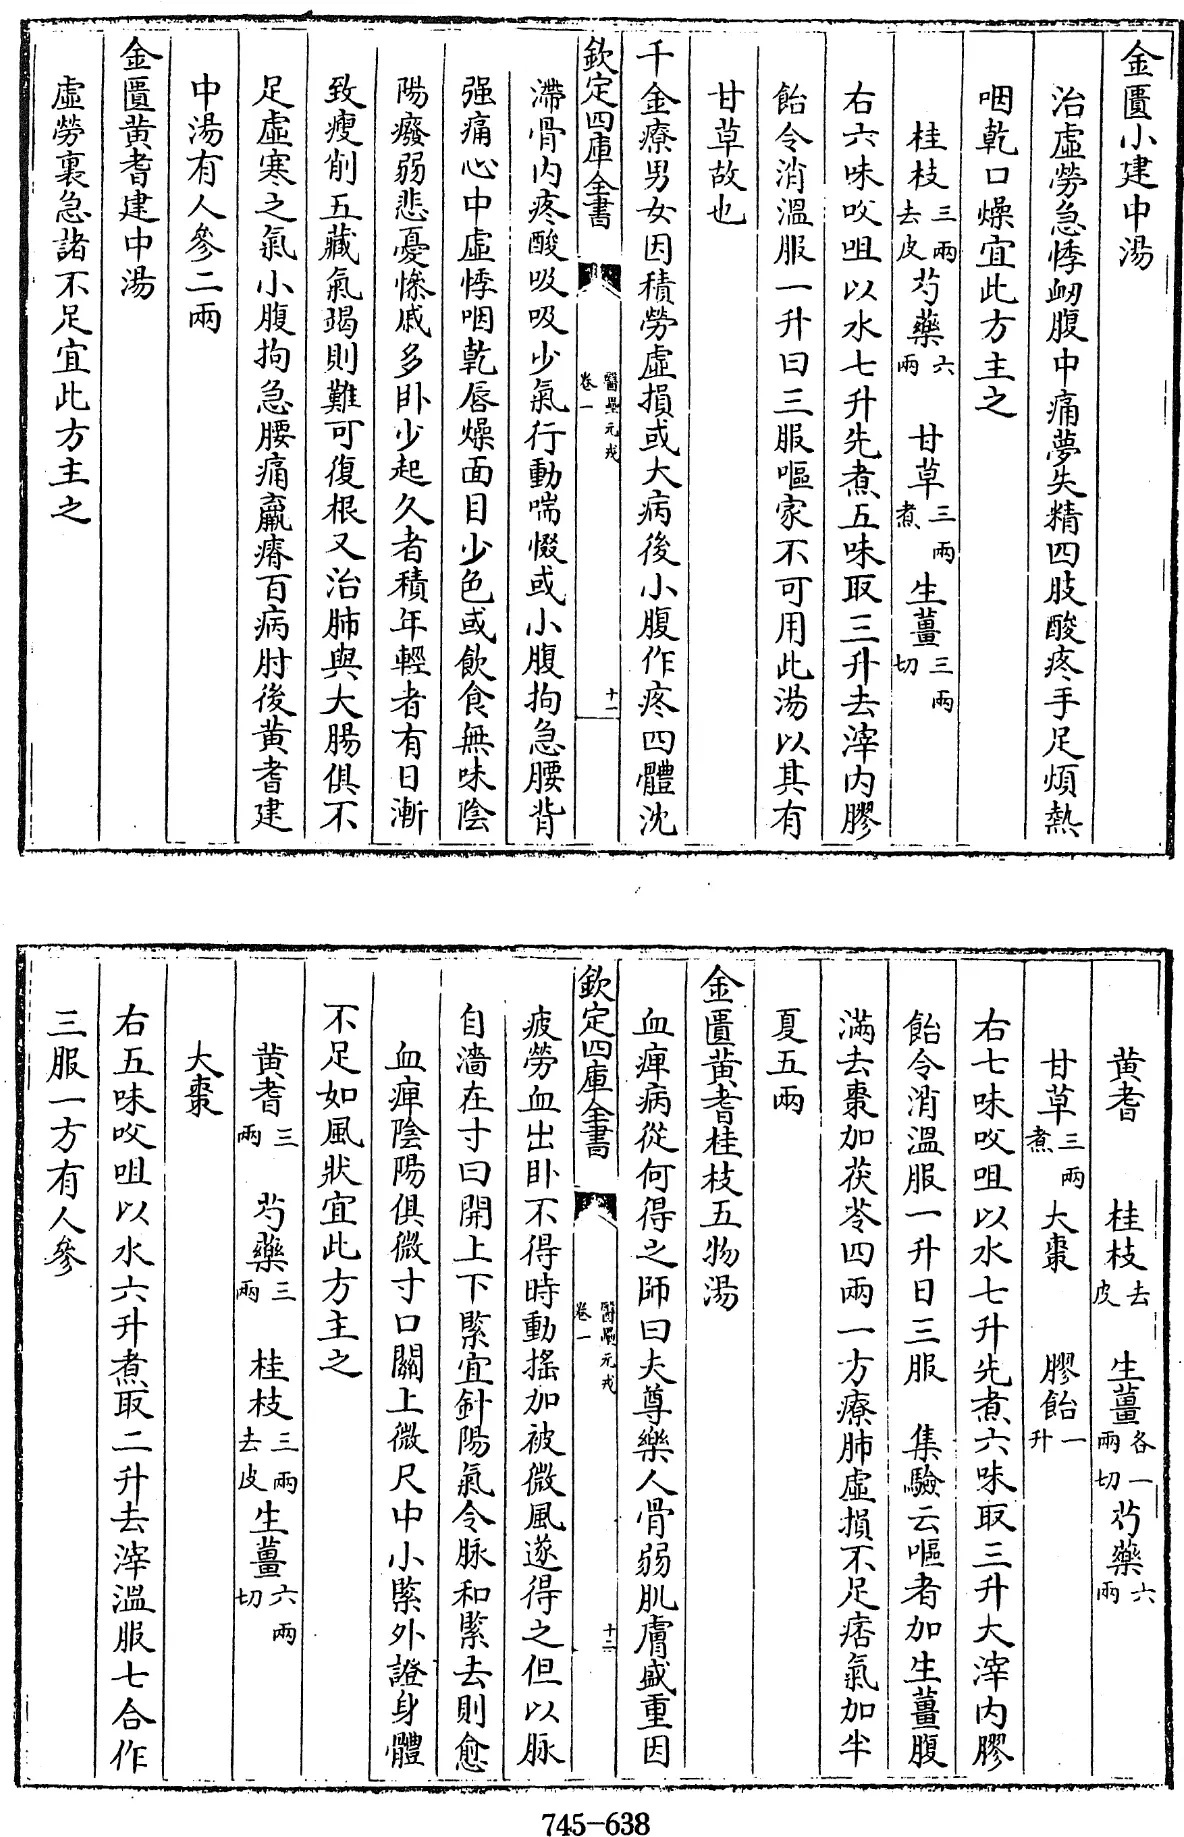 金匱小建中湯
治虛勞急悸衂腹中痛夢失精四肢酸疼手足煩熱
咽乾口燥宜此方主之
桂枝三兩去皮 芍藥六兩 甘草三兩煮 生薑三兩切
右六味㕮咀以水七升先煮五味取三升去滓内膠
飴令消溫服一升曰三服嘔家不可用此湯以其有
甘草故也
千金療男女因積勞虛損或大病後小腹作疼四體沈
欽定四庫全書 醫壘元戎 卷一 十一
滯骨内疼酸吸吸少氣行動喘惙或小腹拘急腰背
强痛心中虛悸咽乾唇燥面目少色或飲食無味陰
陽癈弱悲憂慘戚多卧少起久者積年輕者有日漸
致瘦削五藏氣竭則難可復根又治肺與大腸俱不
足虛寒之氣小腹拘急腰痛羸瘠百病肘後黄耆建
中湯有人參二兩
金匱黄耆建中湯
虛勞裏急諸不足宜此方主之
黄耆 桂枝去皮 生薑各一兩切 芍藥六兩
甘草三兩煮 大棗 膠飴一升
右七味㕮咀以水七升先煮六味取三升大滓内膠
飴令消溫服一升日三服 集驗云嘔者加生薑腹
滿去棗加茯苓四兩一方療肺虛損不足痞氣加半
夏五兩
金匱黄耆桂枝五物湯
血痺病從何得之師曰夫尊樂人骨弱肌膚盛重因
欽定四庫全書 醫壘元戎 卷一 十二
疲勞血出卧不得時動搖加被微風遂得之但以脉
自濇在寸曰開上下緊宜針陽氣令脉和緊去則愈
血痺陰陽俱微寸口關上微尺中小緊外證身體
不足如風狀宜此方主之
黄耆三兩 芍藥三兩 桂枝三兩去皮 生薑六兩切
大棗
右五味㕮咀以水六升煮取二升去滓溫服七合作
三服一方有人參
745-638